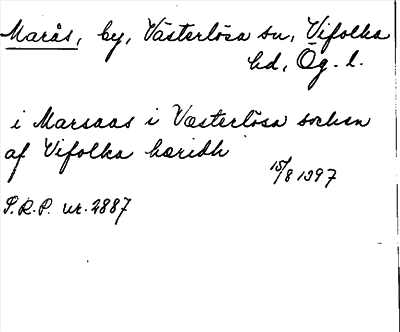 Marås, by, Västerlösa sn, Vifolka
hd, Ög. l.
i Marsaas i Væsterlösa sochen
af Vifolka hæridh
15/8 1397
S.R.P. nr. 2887